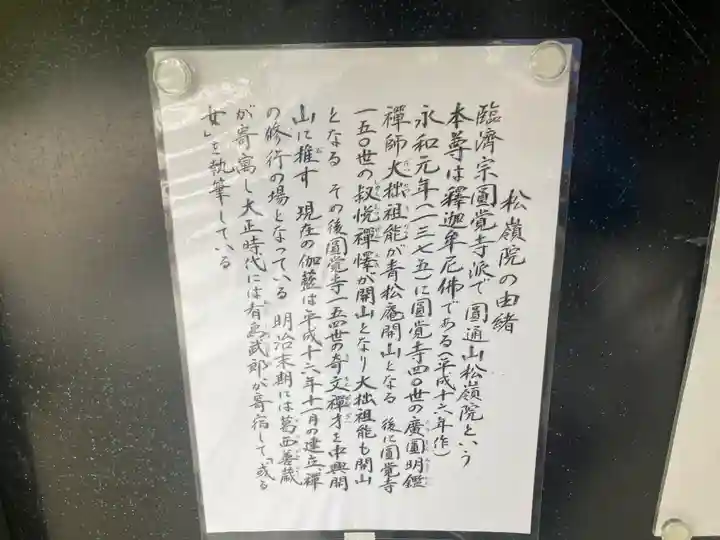 松嶺院の由緒
臨濟宗圓覚寺派で 圓通山松嶺院という
本尊は釋迦牟尼佛である(平成十六年作)
永和元年(一三七五)に圓覚寺四〇世の廣圓明鑑
禪師 大拙祖能が青松庵開山となる 後に圓覚寺
一五〇世の叔悦禪懌が開山となり大拙祖能も開山
となる その後圓覚寺一五四世の奇文禪才を中興開
山に推す 現在の伽藍は平成十六年十一月の建立禪
の修行の場となっている 明治末期には葛西善蔵
が寄寓し大正時代には有島武郎が寄宿して「或る
女」を執筆している